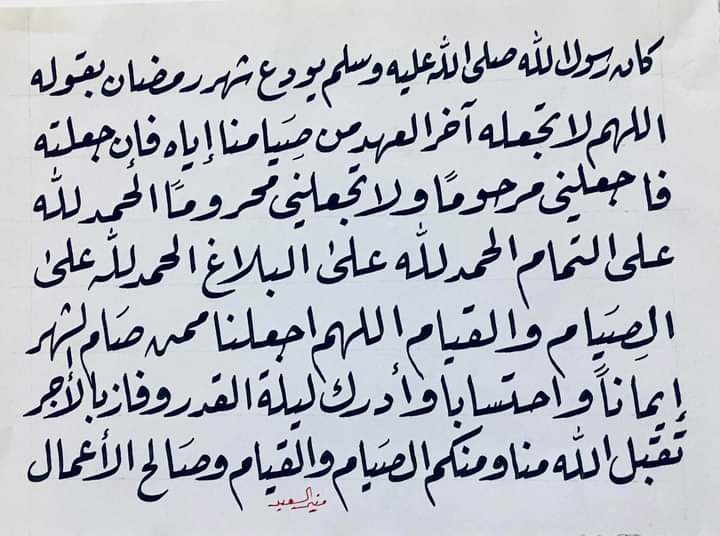 كان رسول الله صلى الله عليه وسلم يودع شهر رمضان بقوله
اللهم لا تجعله آخر العهد من صِيَامنا إياه فإن جعلته
فاجعلني مرحومًا ولا تجعلني محرومًا الحمد لله
على التمام الحمد لله على البلاغ الحمد لله على
الصِيَام والقيام اللهم اجعلنا ممن صَام الشهر
إيماناً واحتسابا وأدرك ليلة القدر وفاز بالأجر
تقبل الله منا ومنكم الصَيام والقيام وصَالح الأعمال
منير السعيد